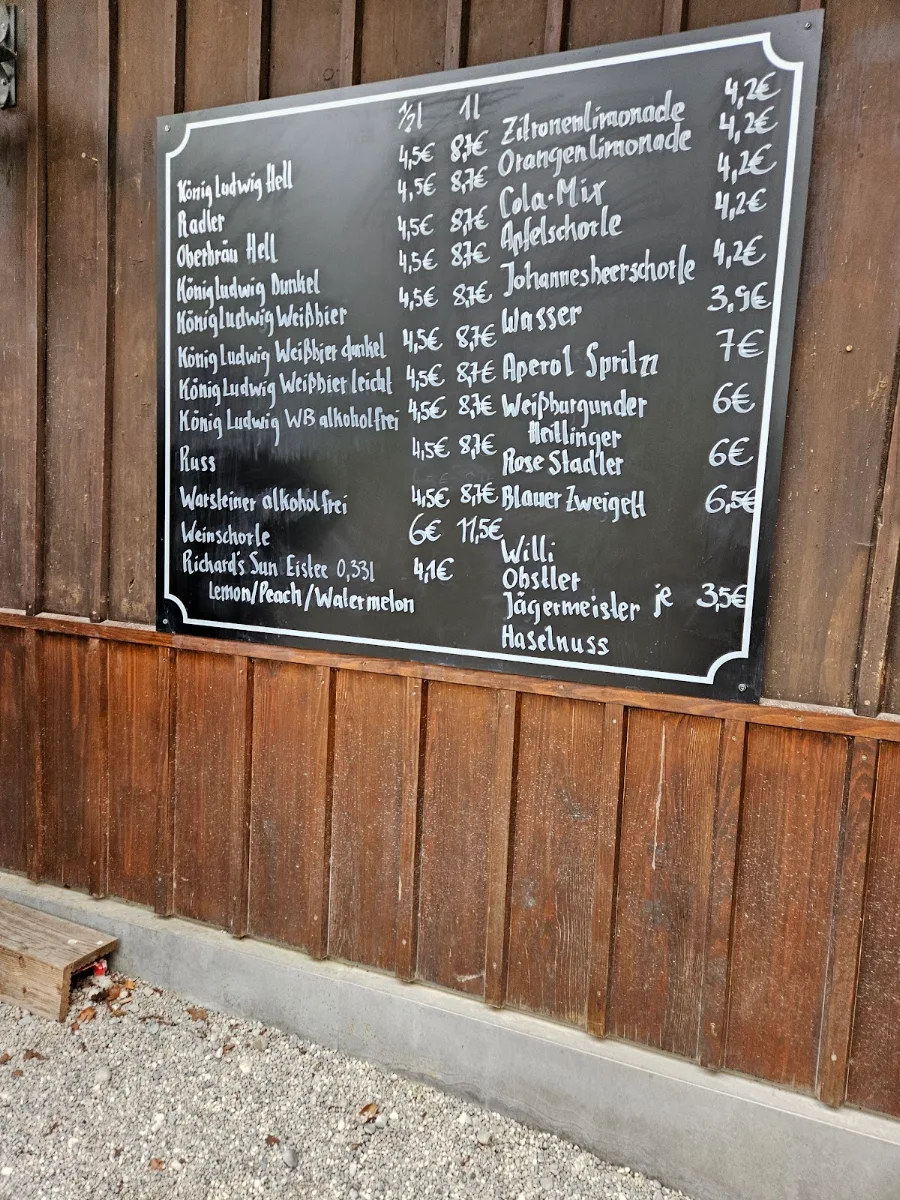 ½l 1l
König Ludwig Hell 4,5€ 8,7€
Radler 4,5€ 8,7€
Oberbräu Hell 4,5€ 8,7€
König Ludwig Dunkel 4,5€ 8,7€
König Ludwig Weißbier 4,5€ 8,7€
König Ludwig Weißbier dunkel 4,5€ 8,7€
König Ludwig Weißbier leicht 4,5€ 8,7€
König Ludwig WB alkoholfrei 4,5€ 8,7€
Russ 4,5€ 8,7€
Warsteiner alkoholfrei 4,5€ 8,7€
Weinschorle 6€ 11,5€
Richard's Sun Eistee 0,33l 4,1€
Lemon/Peach/Watermelon
Zitronenlimonade 4,2€
Orangenlimonade 4,2€
Cola-Mix 4,2€
Apfelschorle 4,2€
Johannesbeerschorle 4,2€
Wasser 3,9€
Aperol Sprizz 7€
Weißburgunder 6€
Heitlinger
Rose Stadler 6€
Blauer Zweigelt 6,5€
Willi
Obstler
Jägermeister je 3,5€
Haselnuss